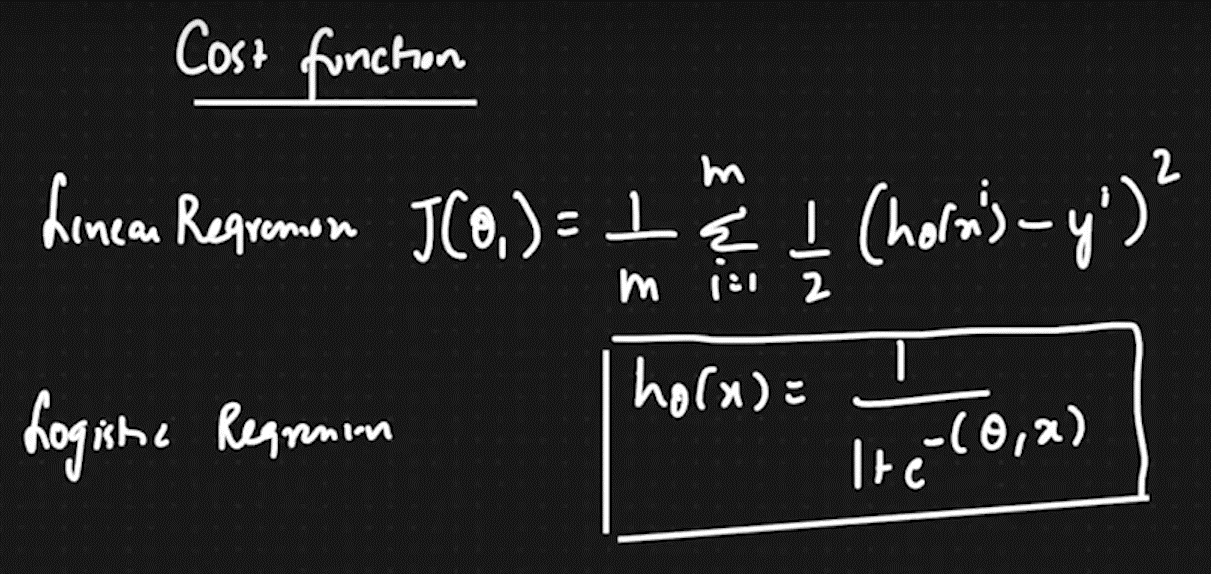 Cost function
Linear Regression J(θ₁) = 1/m Σ_{i=1}^{m} 1/2 (hθ(xⁱ) − yⁱ)²
Logistic Regression hθ(x) = 1/(1+e^{−(θ₁x)})